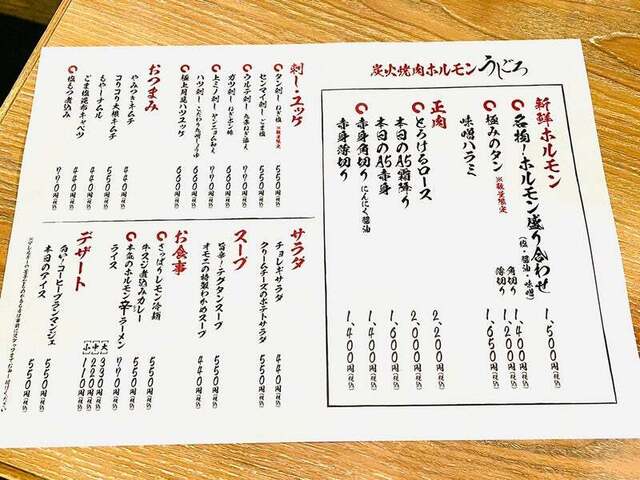 炭火焼肉ホルモンうしごろ
新鮮ホルモン
名物！ホルモン盛り合わせ
(塩・醤油・味噌)
1,500円(税込)
極みのタン ※数量限定
角切り 1,400円(税込)
薄切り 1,200円(税込)
味噌ハラミ 1,650円(税込)
正肉
とろけるロース 2,200円(税込)
本日のA5霜降り 2,000円(税込)
本日のA5赤身 1,600円(税込)
赤身角切り にんにく醤油 1,400円(税込)
赤身薄切り 1,400円(税込)
刺し・ユッケ
タン刺し ねぎ塩 ※数量限定 550円(税込)
センマイ刺し ごま塩 550円(税込)
ウルテ刺し 550円(税込)
ガツ刺し ねぎポン酢 660円(税込)
上ミノ刺し ヤンニョム和え 660円(税込)
ハツ刺し こだわり九州しょうゆ 660円(税込)
極上月見ハツユッケ 770円(税込)
おつまみ
やみつきキムチ 440円(税込)
コリコリ大根キムチ 550円(税込)
もやしナムル 440円(税込)
ごま塩昆布キャベツ 440円(税込)
塩もつ煮込み 770円(税込)
サラダ
チョレギサラダ 440円(税込)
クリームチーズのポテトサラダ 550円(税込)
スープ
旨辛！テグタンスープ 550円(税込)
オモニの特製わかめスープ 440円(税込)
お食事
さっぱりレモン冷麺 550円(税込)
牛スジ煮込みカレー 550円(税込)
本気のホルモン辛ラーメン 770円(税込)
ライス
大 330円(税込)
中 220円(税込)
小 110円(税込)
デザート
白い！コーヒーブランマンジェ 550円(税込)
本日のアイス 550円(税込)